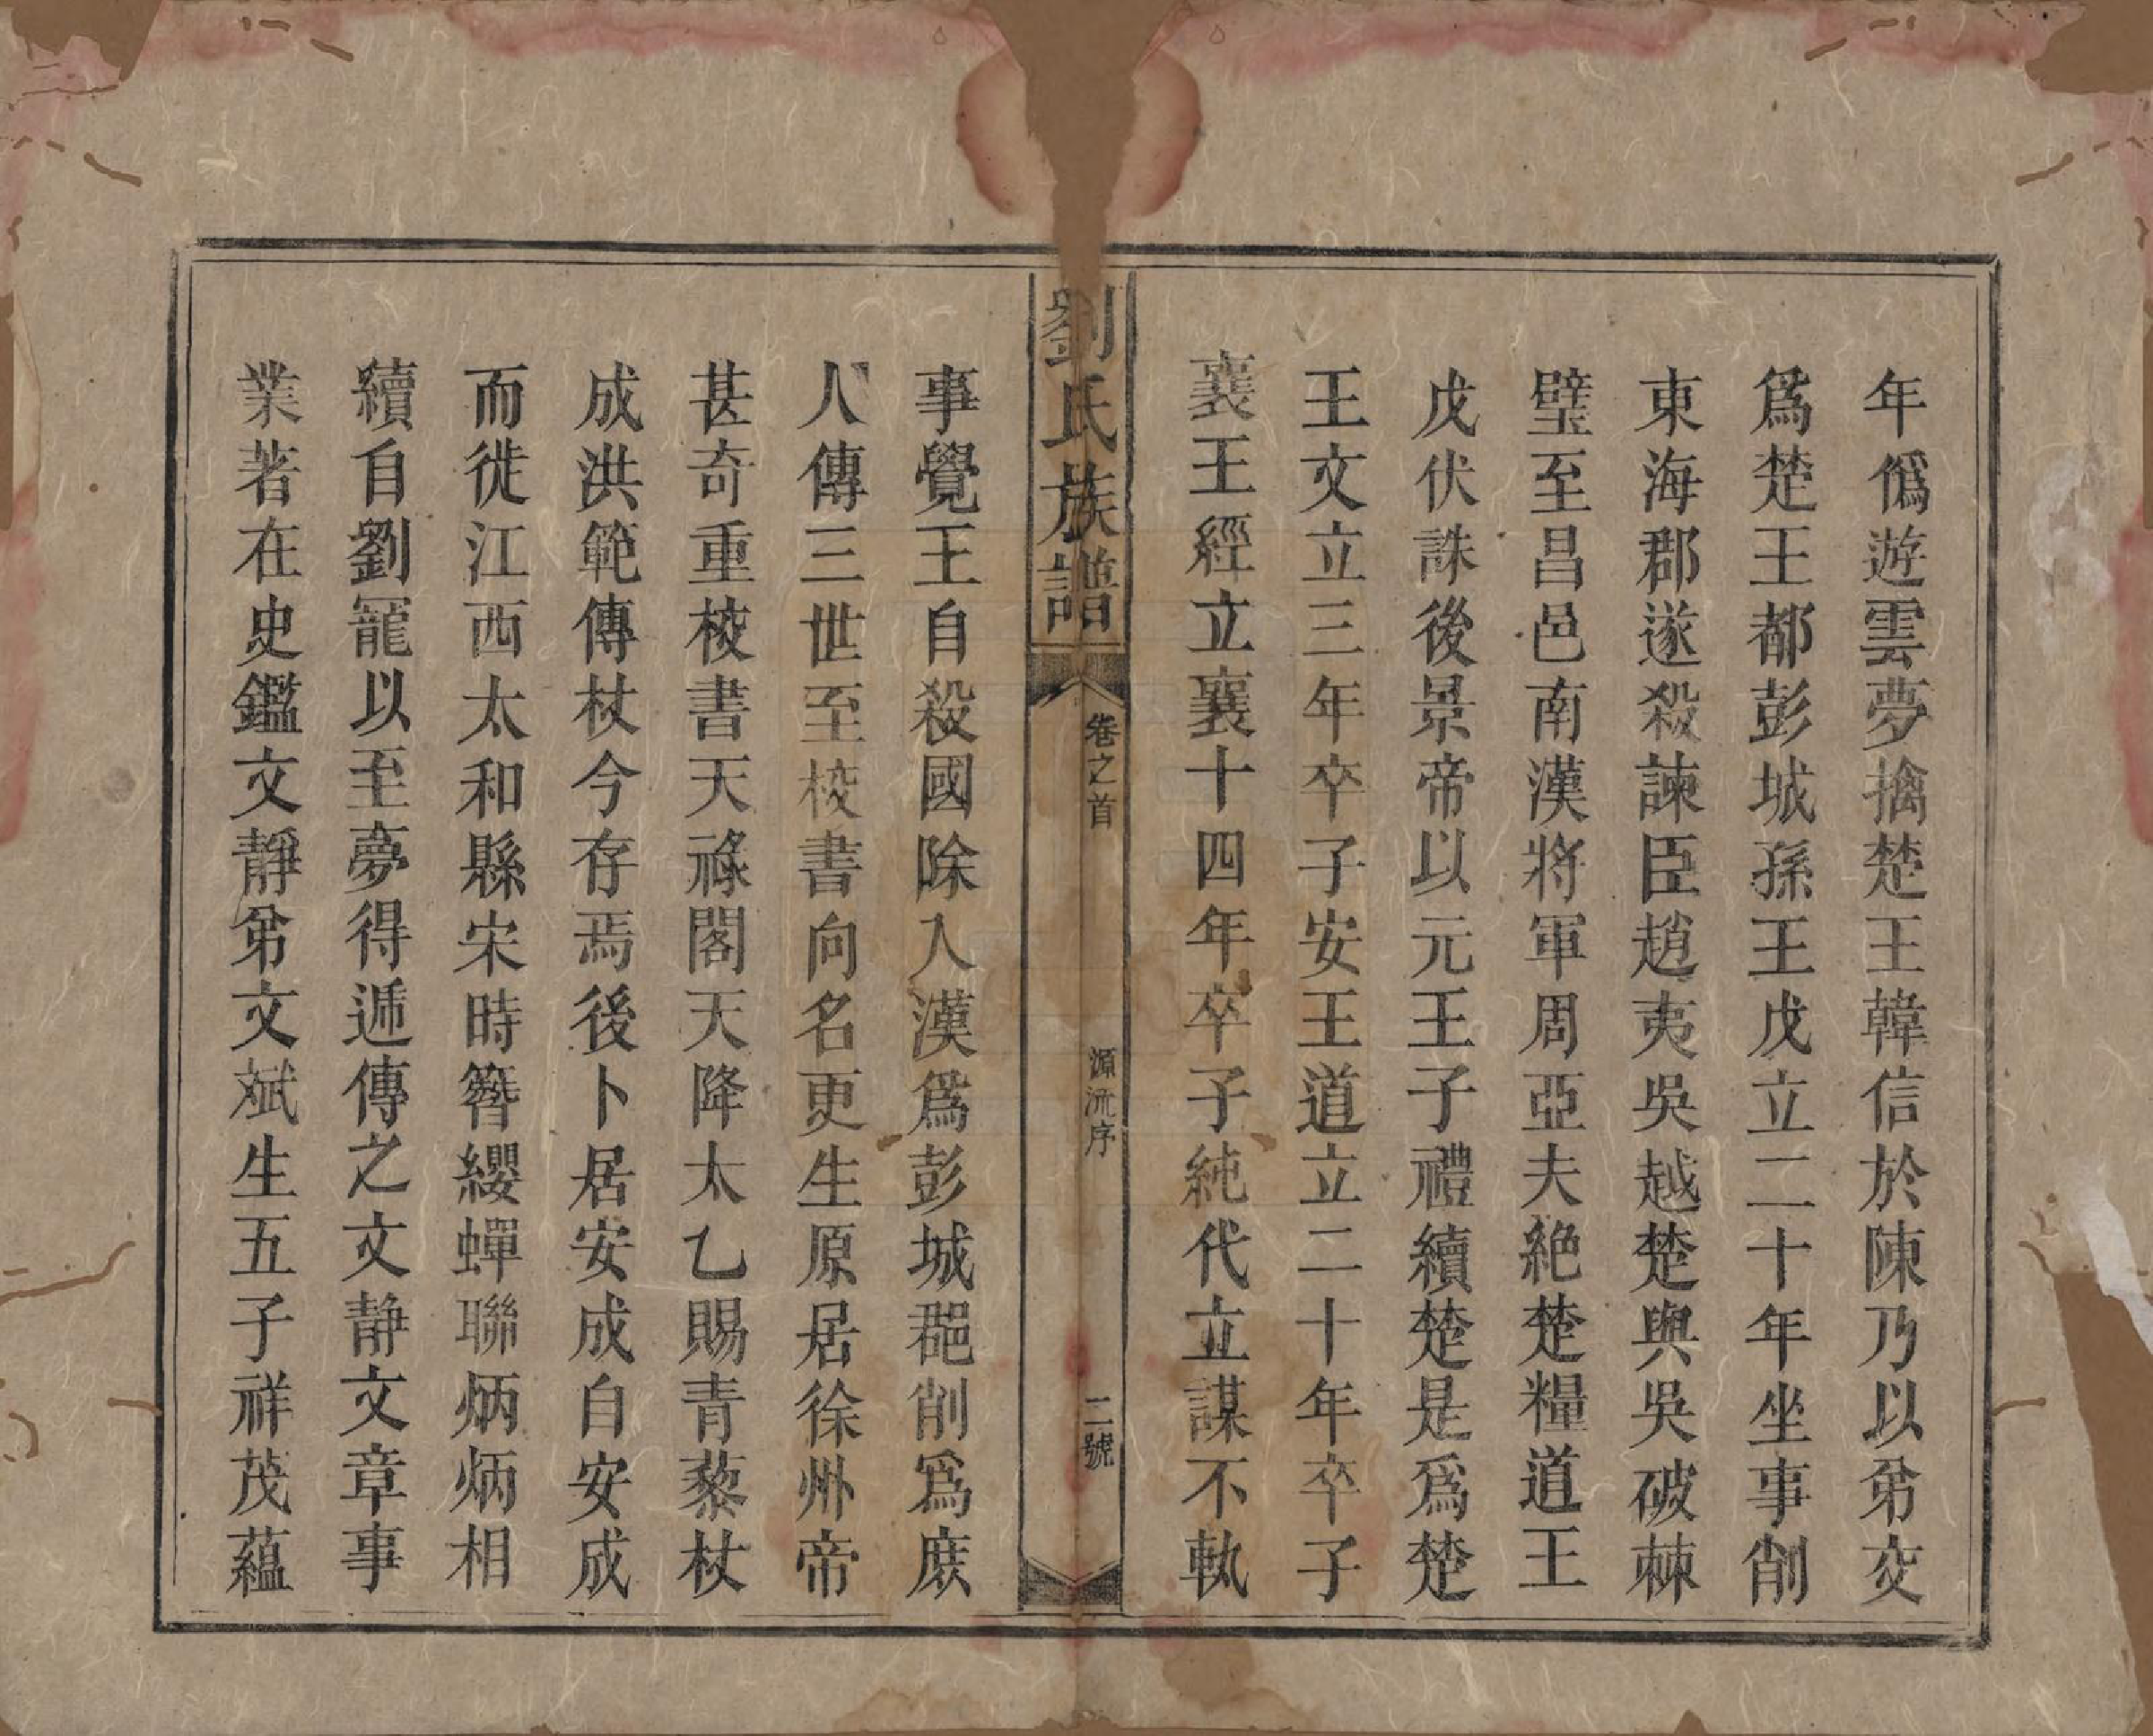 年僞遊雲夢擒楚王韓信於陳乃以弟交
爲楚王都彭城孫王戊立二十年坐事削
東海郡遂殺諫臣趙夷吳吳越楚與吳破棘
璧至昌邑南漢將軍周亞夫絶楚糧道王
戊伏誅後景帝以元王子禮續楚是爲楚
王文立三年卒子安王道立二十年卒子
襄王經立襄十四年卒子純代立謀不軌
劉氏族譜
卷之首
源流序
二號
事覺王自殺國除入漢爲彭城郡削爲庶
人傳三世至校書向名更生原居徐州帝
甚奇重校書天祿閣天降太乙賜青藜杖
成洪範傳杖今存焉後卜居安成自安成
而徙江西太和縣宋時簪纓蟬聯炳炳相
續自劉寵以至夢得遞傳之文靜文章事
業著在史鑑文靜弟文斌生五子祥茂蘊